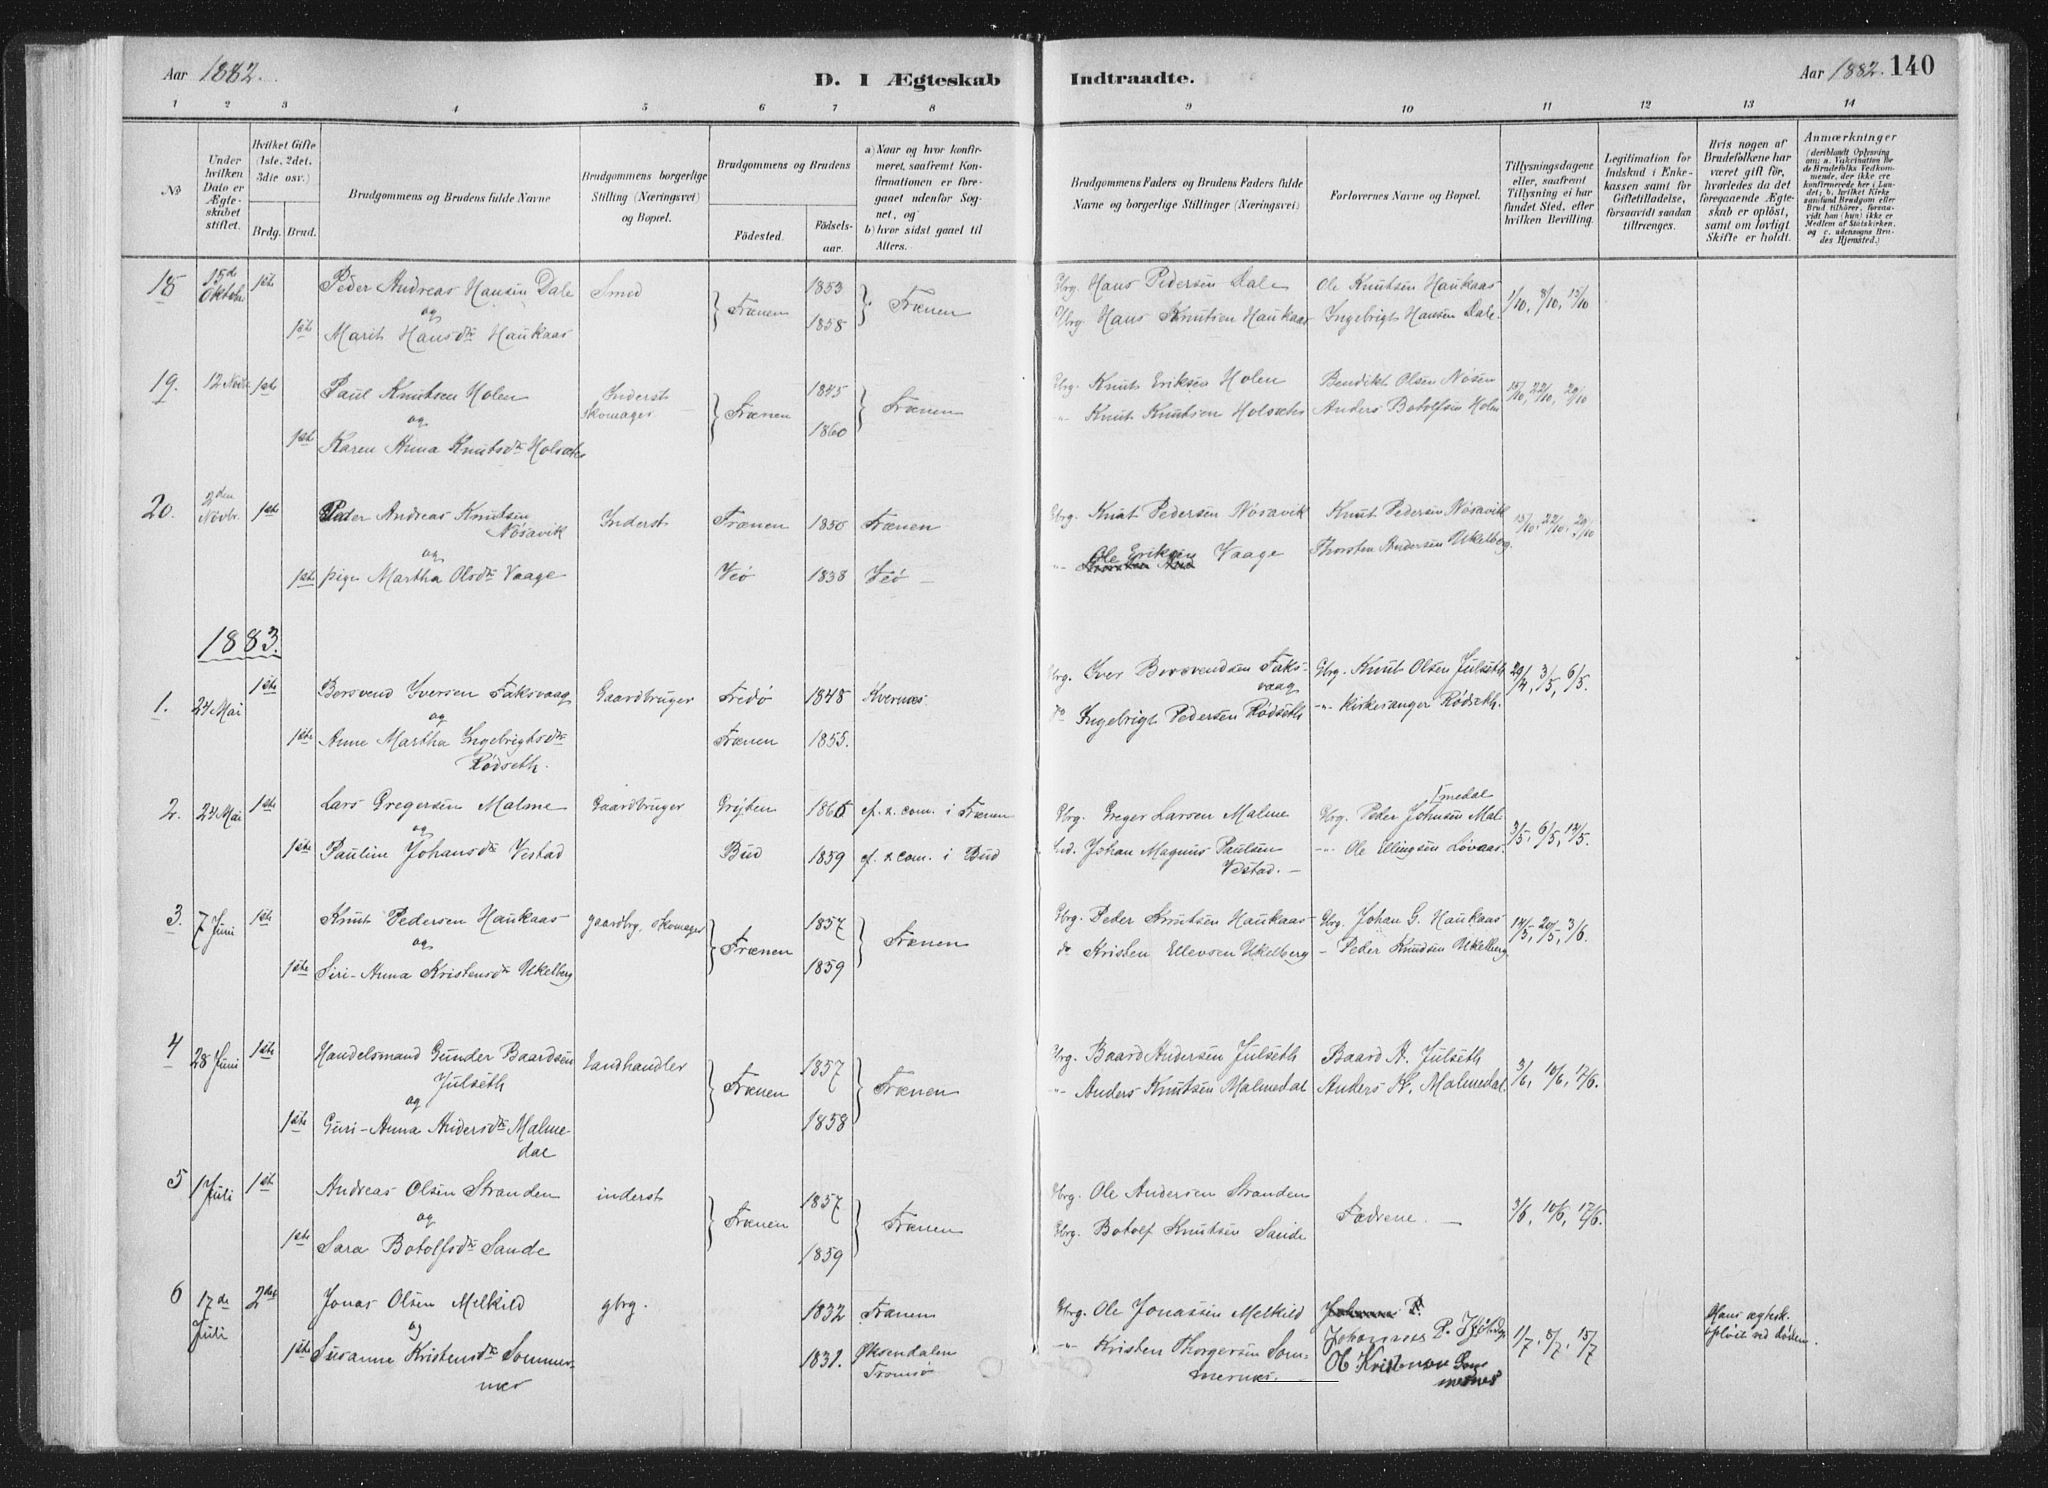 Aar 1882.
D. I Ægteskab Indtraadte.
Aar 1882. 140
1 2 3 4 5 6 7 8 9 10 11 12 13 14
No
Under hvilken Dato er Ægteskabet stiftet.
Hvilket Gifte (1ste, 2det, 3die osv.)
Brdg. Brud.
Brudgommens og Brudens fulde Navne
Brudgommens borgerlige Stilling (Næringsvei) og Bopæl.
Brudgommens og Brudens
Födested.
Födselsaar.
a) Naar og hvor konfirmeret, saafremt Konfirmationen er foregaaet udenfor Sognet, og
b) hvor sidst gaaet til Alters.
Brudgommens Faders og Brudens Faders fulde Navne og borgerlige Stillinger (Næringsvei)
Forlovernes Navne og Bopæl.
Tillysningsdagene eller, saafremt Tillysning ei har fundet Sted, efter hvilken Bevilling.
Legitimation for Indskud i Enkekassen samt for Giftetilladelse, forsaavidt saadan tiltrænges.
Hvis nogen af Brudefolkene har været gift før, hvorledes da det foregaaende Ægteskab er opløst, samt om lovligt Skifte er holdt.
Anmærkninger
18 15de Oktobr 1ste Peder Andreas Hansen Dale Smed 1853 Gbrg. Hans Pedersen Dale Ole Knutsen Haukaas 1/10, 8/10, 15/10
og Frænen Frænen
1ste Marit Hansdtr Haukaas 1858 Gbrg. Hans Knutsen Haukaas Ingebrigt Hansen Dale.
19. 12 Novbr 1ste Paul Knutsen Holen Inderst Skomager 1845 Gbrg. Knut Eriksen Holen Bendikt Olsen Nøsen 15/10, 22/10, 29/10
og Frænen Frænen
1ste Karen Anna Knutsdtr Holsæth 1860 " Knut Knutsen Holsæth Anders Botolfsen Holen
20. 2den Novbr. 1ste Peder Andreas Knutsen Nøsavik Inderst Frænen 1850 Frænen Gbrg. Knut Pedersen Nøsavik Knut Pedersen Nøsavik 15/10, 22/10, 29/10
og
1ste pige Martha Olsdtr Vaage Veø 1838 Veø " Ole Eriksen Vaage Thorsten Andersen Ukelberg.
1883.
1. 24 Mai 1ste Bersvend Iversen Faksvaag Gaardbruger Fredø 1848 Kvernæs Gbrg. Iver Bersvendsen Faksvaag Gbrg. Knut Olsen Julseth 29/4, 3/5, 6/5.
og
1ste Anne Martha Ingebrigtsdtr Rødseth. Frænen 1855. do Ingebrigt Pedersen Rødseth -"- Kirkesanger Rødseth.
2. 24 Mai 1ste Lars Gregersen Malme Gaardbruger Grytten cf. & com. i Frænen Gbrg. Greger Larsen Malme Gbrg. Peder Johnsen Malmedal 3/5, 6/5, 14/5.
og
1ste Pauline Johansdtr Vestad Bud 1859 cf. & com. i Bud Johan Magnus Paulsen Vestad. -"- Ole Ellingsen Løvaas.
3. 7 Juni 1ste Knut Pedersen Haukaas gaardbrg. Skomager 1857 Gbrg. Peder Knutsen Haukaas Gbrg. Johan G. Haukaas 14/5, 20/5, 3/6.
og Frænen Frænen
1ste Siri-Anna Kristensdtr Ukelberg 1859 do Kristen Ellevsen Ukelberg - Peder Knudsen Ukelberg
4 28 Juni 1ste Handelsmand Gunder Baardsen Julseth Landhandler 1857 Gbrg. Baard Andersen Julseth Baard A. Julseth 3/6, 10/6, 17/6.
og Frænen Frænen
1ste Guri-Anna Andersdtr Malmedal 1858 -"- Anders Knutsen Malmedal Anders K. Malmedal
5 1 Juli 1ste Andreas Olsen Stranden inderst 1857 Gbrg. Ole Andersen Stranden Fædrene. 3/6, 10/6, 17/6.
og Frænen Frænen
1ste Sara Botolfsdtr Sande 1859 Gbrg. Botolf Knutsen Sande
6 17de Juli 2det Jonas Olsen Melkild gbrg. 1832 Frænen Gbrg. Ole Jonassen Melkild Johannes P. 1/7, 8/7, 15/7 Hans ægtesk. opløst ved døden.
og
1ste Susanne Kristensdtr Sommernæs 1831. Øksendalen Tromsø -"- Kristen Thorgersen Sommernæs. Ole Kristensen Sommernes